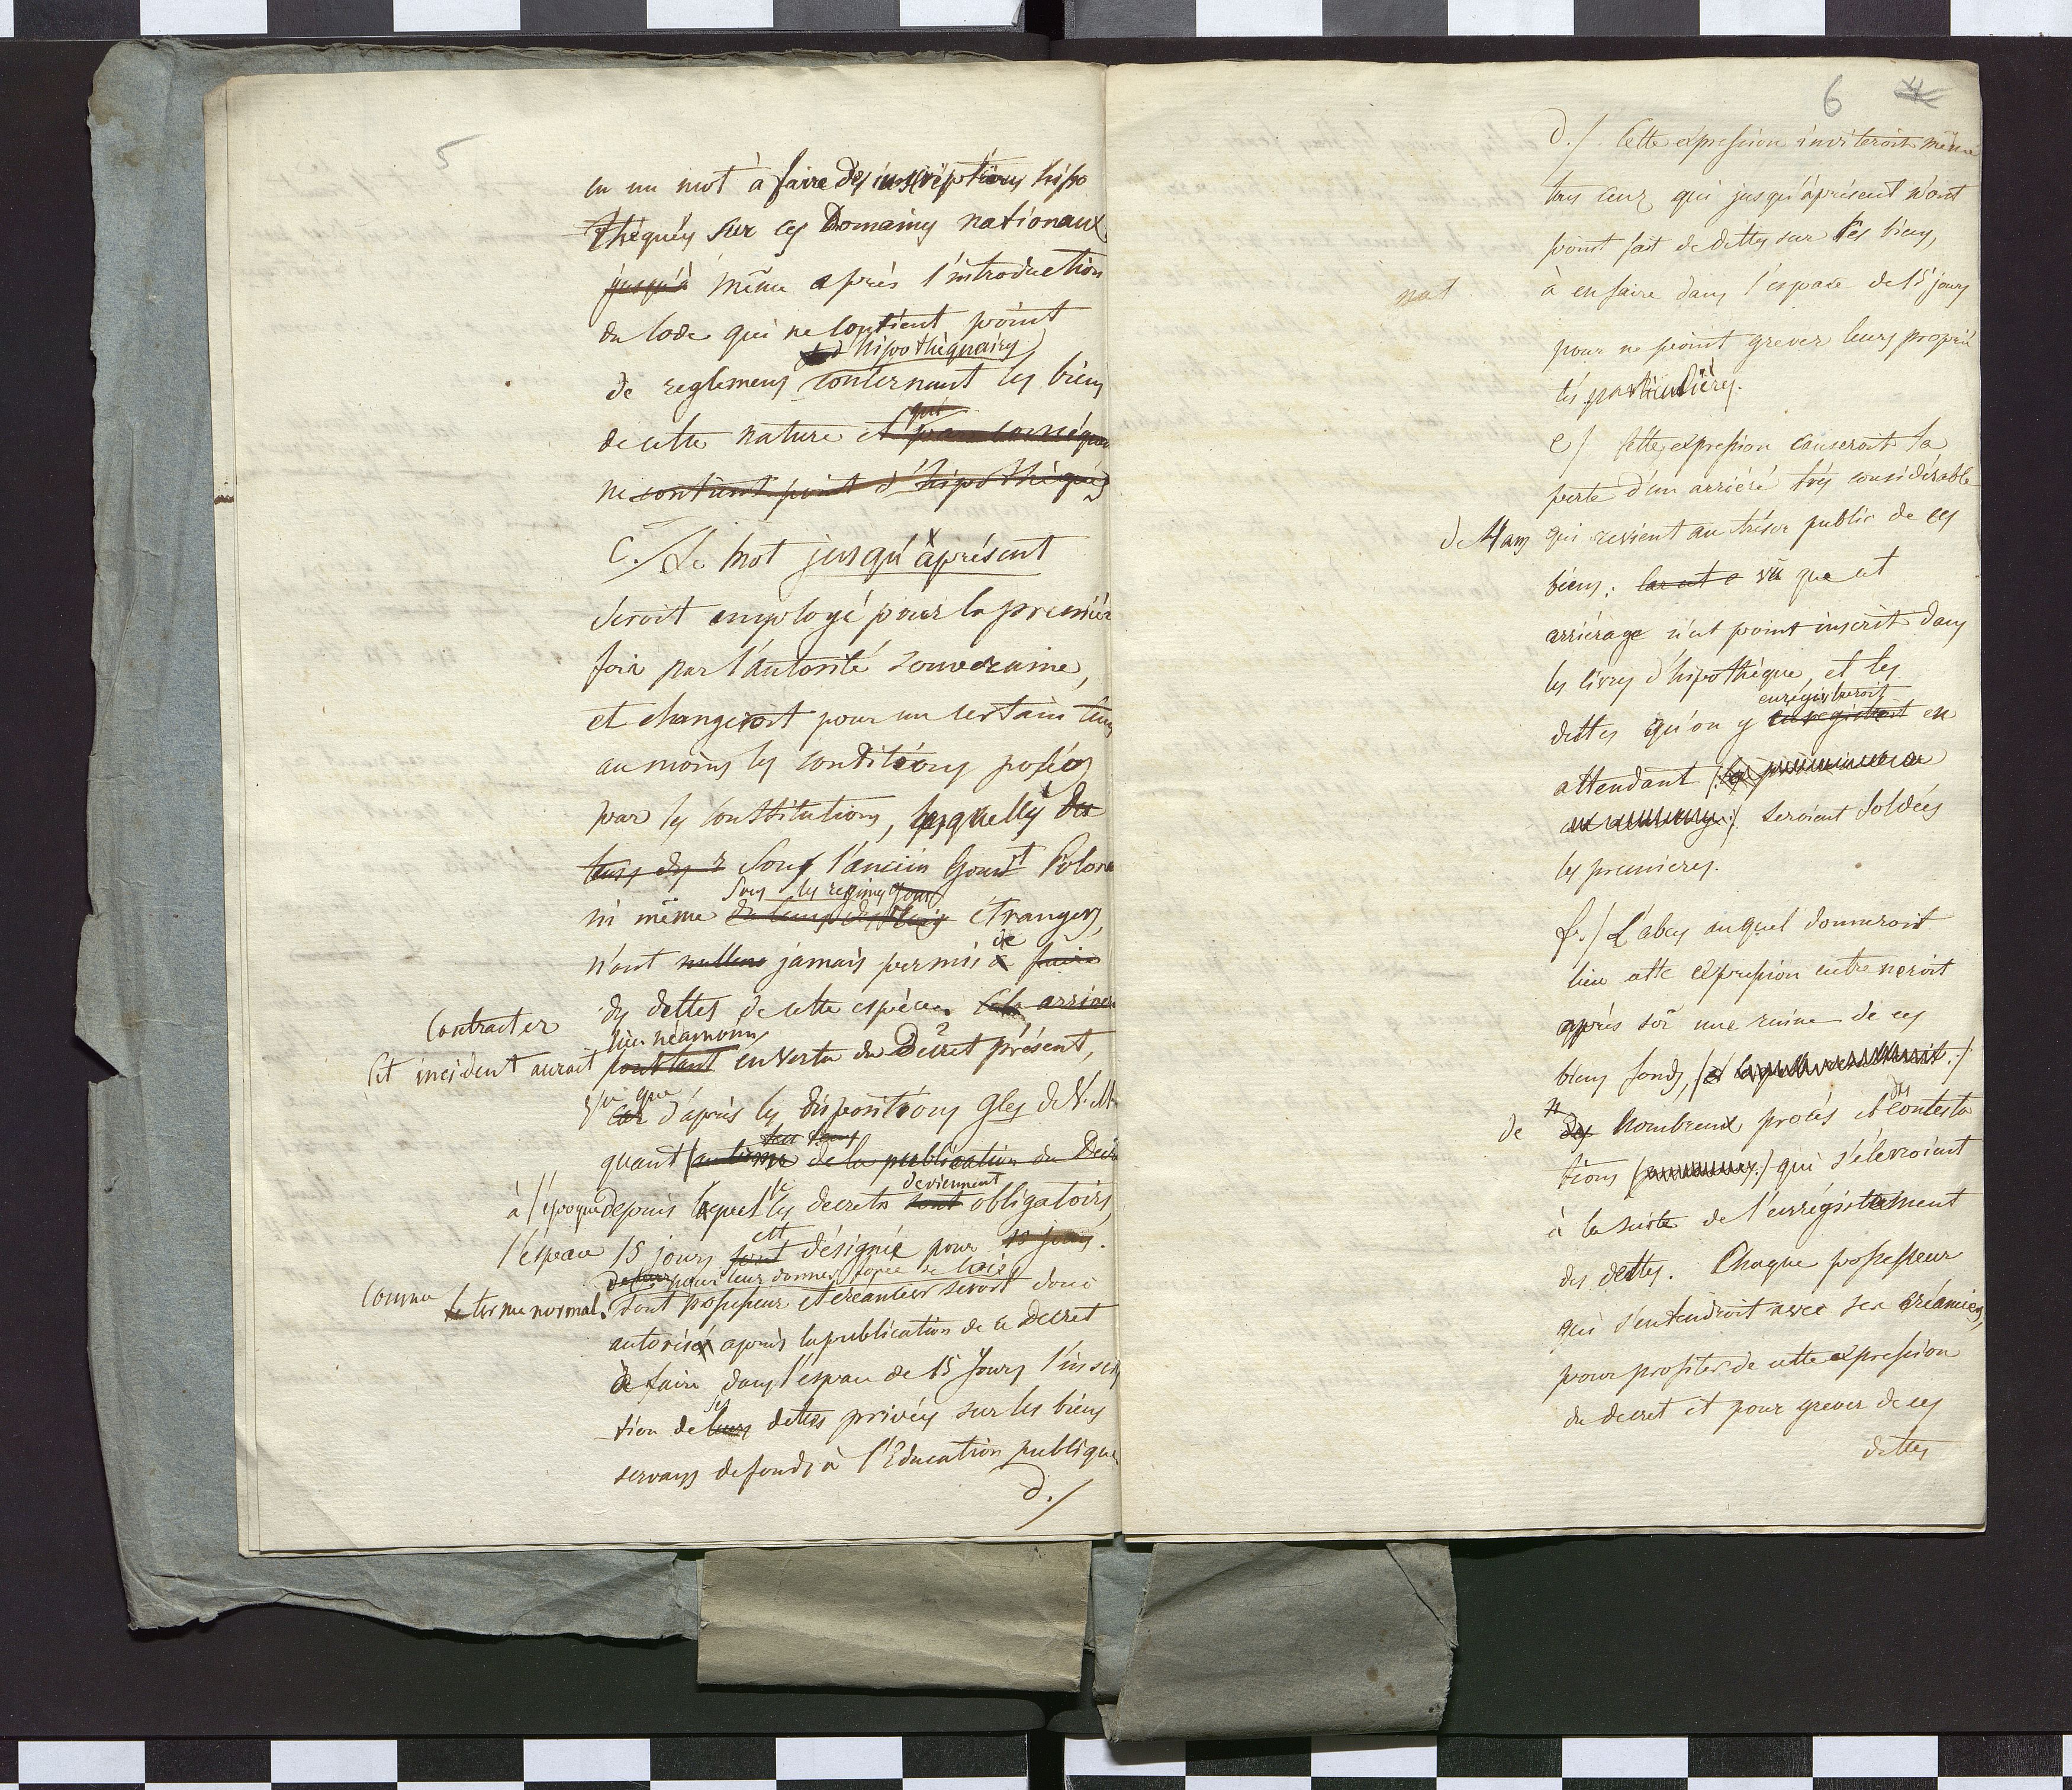 5
en un mot à faire des inscriptions hipo
théquées sur ces Domaines nationaux
jusqu'à même après l'introduction
du Code qui ne contient point
d'hipothéquaires
de reglemens concernant les biens
qui
de cette nature et par conséquen
ne contient point d'hipothèques
C./ Le mot jusqu'àprésent
seroit employé pour la premièr
fois par l'autorité souveraine,
et changeroit pour un certain tems
au moins les conditions posées
par les Constitutions, lesquelles
sous l'ancien Gouvt Polon
sous les regimes
ni même étrangers,
de
n'ont jamais permis à faire
Contracter
des dettes de cette espèce. Cela arriver
lieu néamoins
Cet incident auroit pourtant en vertu du Décret présent,
vu que
car d'après les dispositions Gles de V. M.
quant de la publication du Decr
deviennent
à l'époque depuis laquelle les decrets sont obligatoires,
est
l'éspace 15 jours sont désignée pour 15 jours.
pour leur donner force de lois
Comme le terme normal. Tout possesseur et créancier seroit donc
autorisé après la publication de ce Decret
à faire dans l'espace de 15 Jours l'inscrip
ses
tion de leurs dettes privées sur les biens
servans de fonds à l'Education publique
d./
6
d./ Cette expression inviteroit même
tous ceux qui jusqu'àprésent n'ont
point fait de dettes sur ces biens,
nat
à en faire dans l'espace de 15 jours
pour ne point grever leurs proprié
tés particulières.
e/ Cette expression causeroit la
perte d'un arriéré très considérable
de 4 ans qui revient au trésor public de ces
biens; car cet vû que cet
arriérage n'est point inscrit dans
les livres d'hipothèque, et les
enrégistreroit
dettes qu'on y enregistroit en
attendant
seroient soldées
les premieres.
f./ L'abus auquel donneroit
lieu cette expression entreneroit
après soi une ruine de ces
biens fonds,
des
de des nombreux procès et contesta
tions qui s'éleveroient
à la suite de l'enrégistrement
des dettes. Chaque possesseur
qui s'entendroit avec ses créanciers,
pour profiter de cette expression
du decret et pour grever de ces
dettes